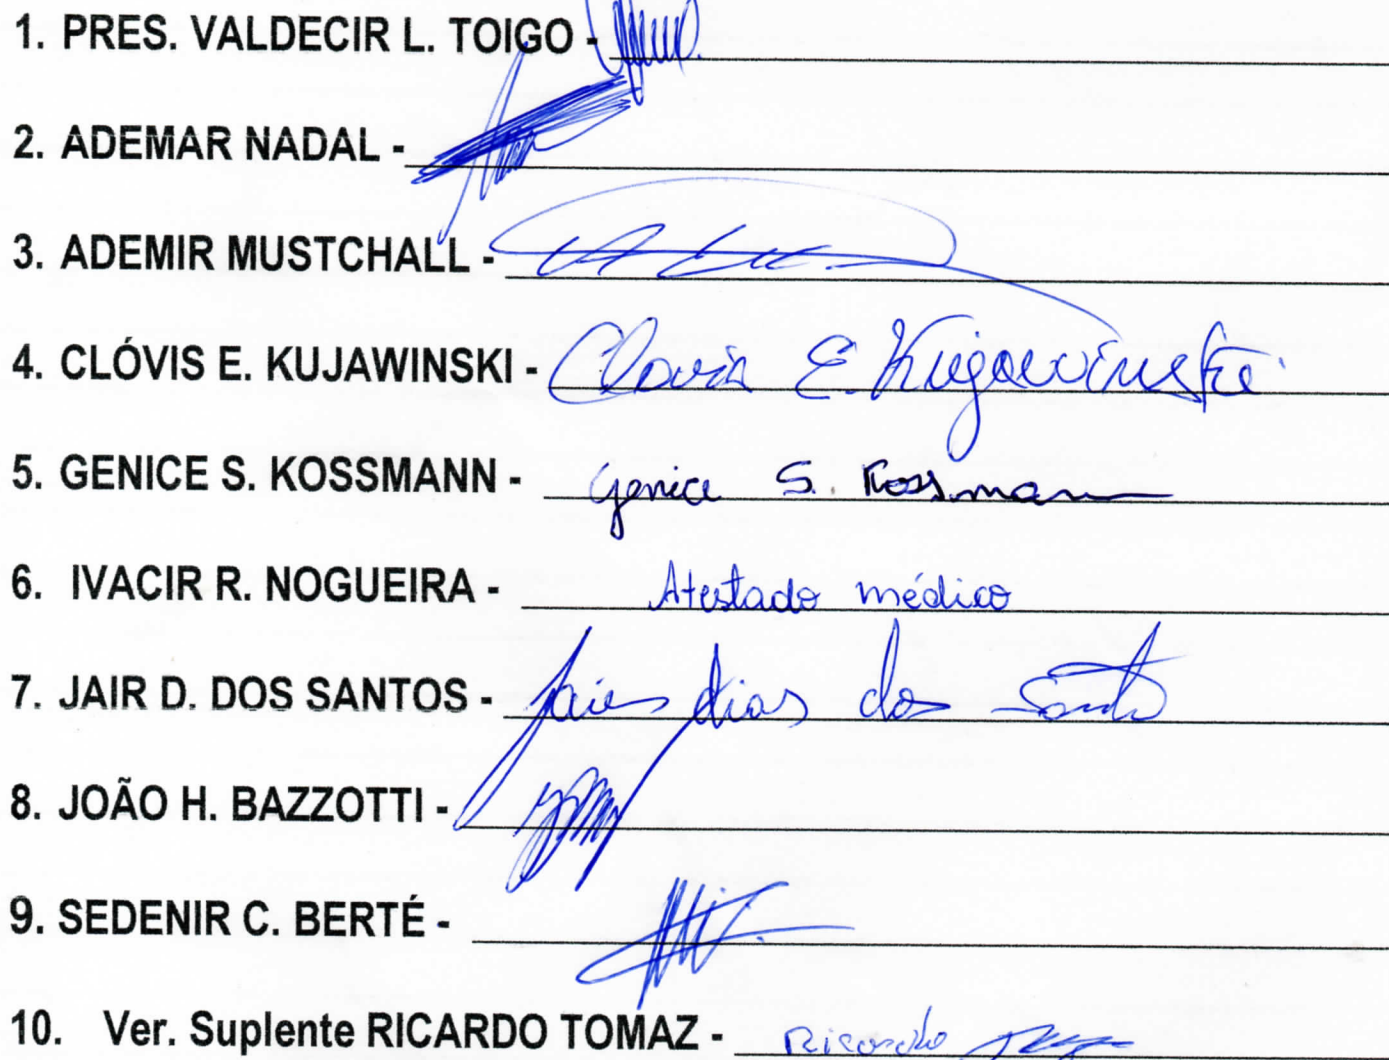 1. PRES. VALDECIR L. TOIGO -
2. ADEMAR NADAL -
3. ADEMIR MUSTCHALL -
4. CLÓVIS E. KUJAWINSKI - Clovis E. Kujawinski
5. GENICE S. KOSSMANN - Genice S. Kossmann
6. IVACIR R. NOGUEIRA - Atestado médico
7. JAIR D. DOS SANTOS - Jair dias dos Santos
8. JOÃO H. BAZZOTTI -
9. SEDENIR C. BERTÉ -
10. Ver. Suplente RICARDO TOMAZ - Ricardo